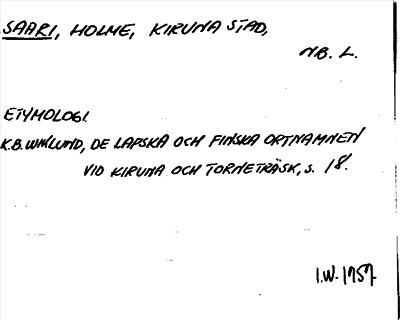 SAARI, HOLME, KIRUNA STAD,
NB. L.
ETYMOLOGI.
K.B. WIKLUND, DE LAPSKA OCH FINSKA ORTNAMNEN
VID KIRUNA OCH TORNETRÄSK, S. 18.
I.W. 1957.